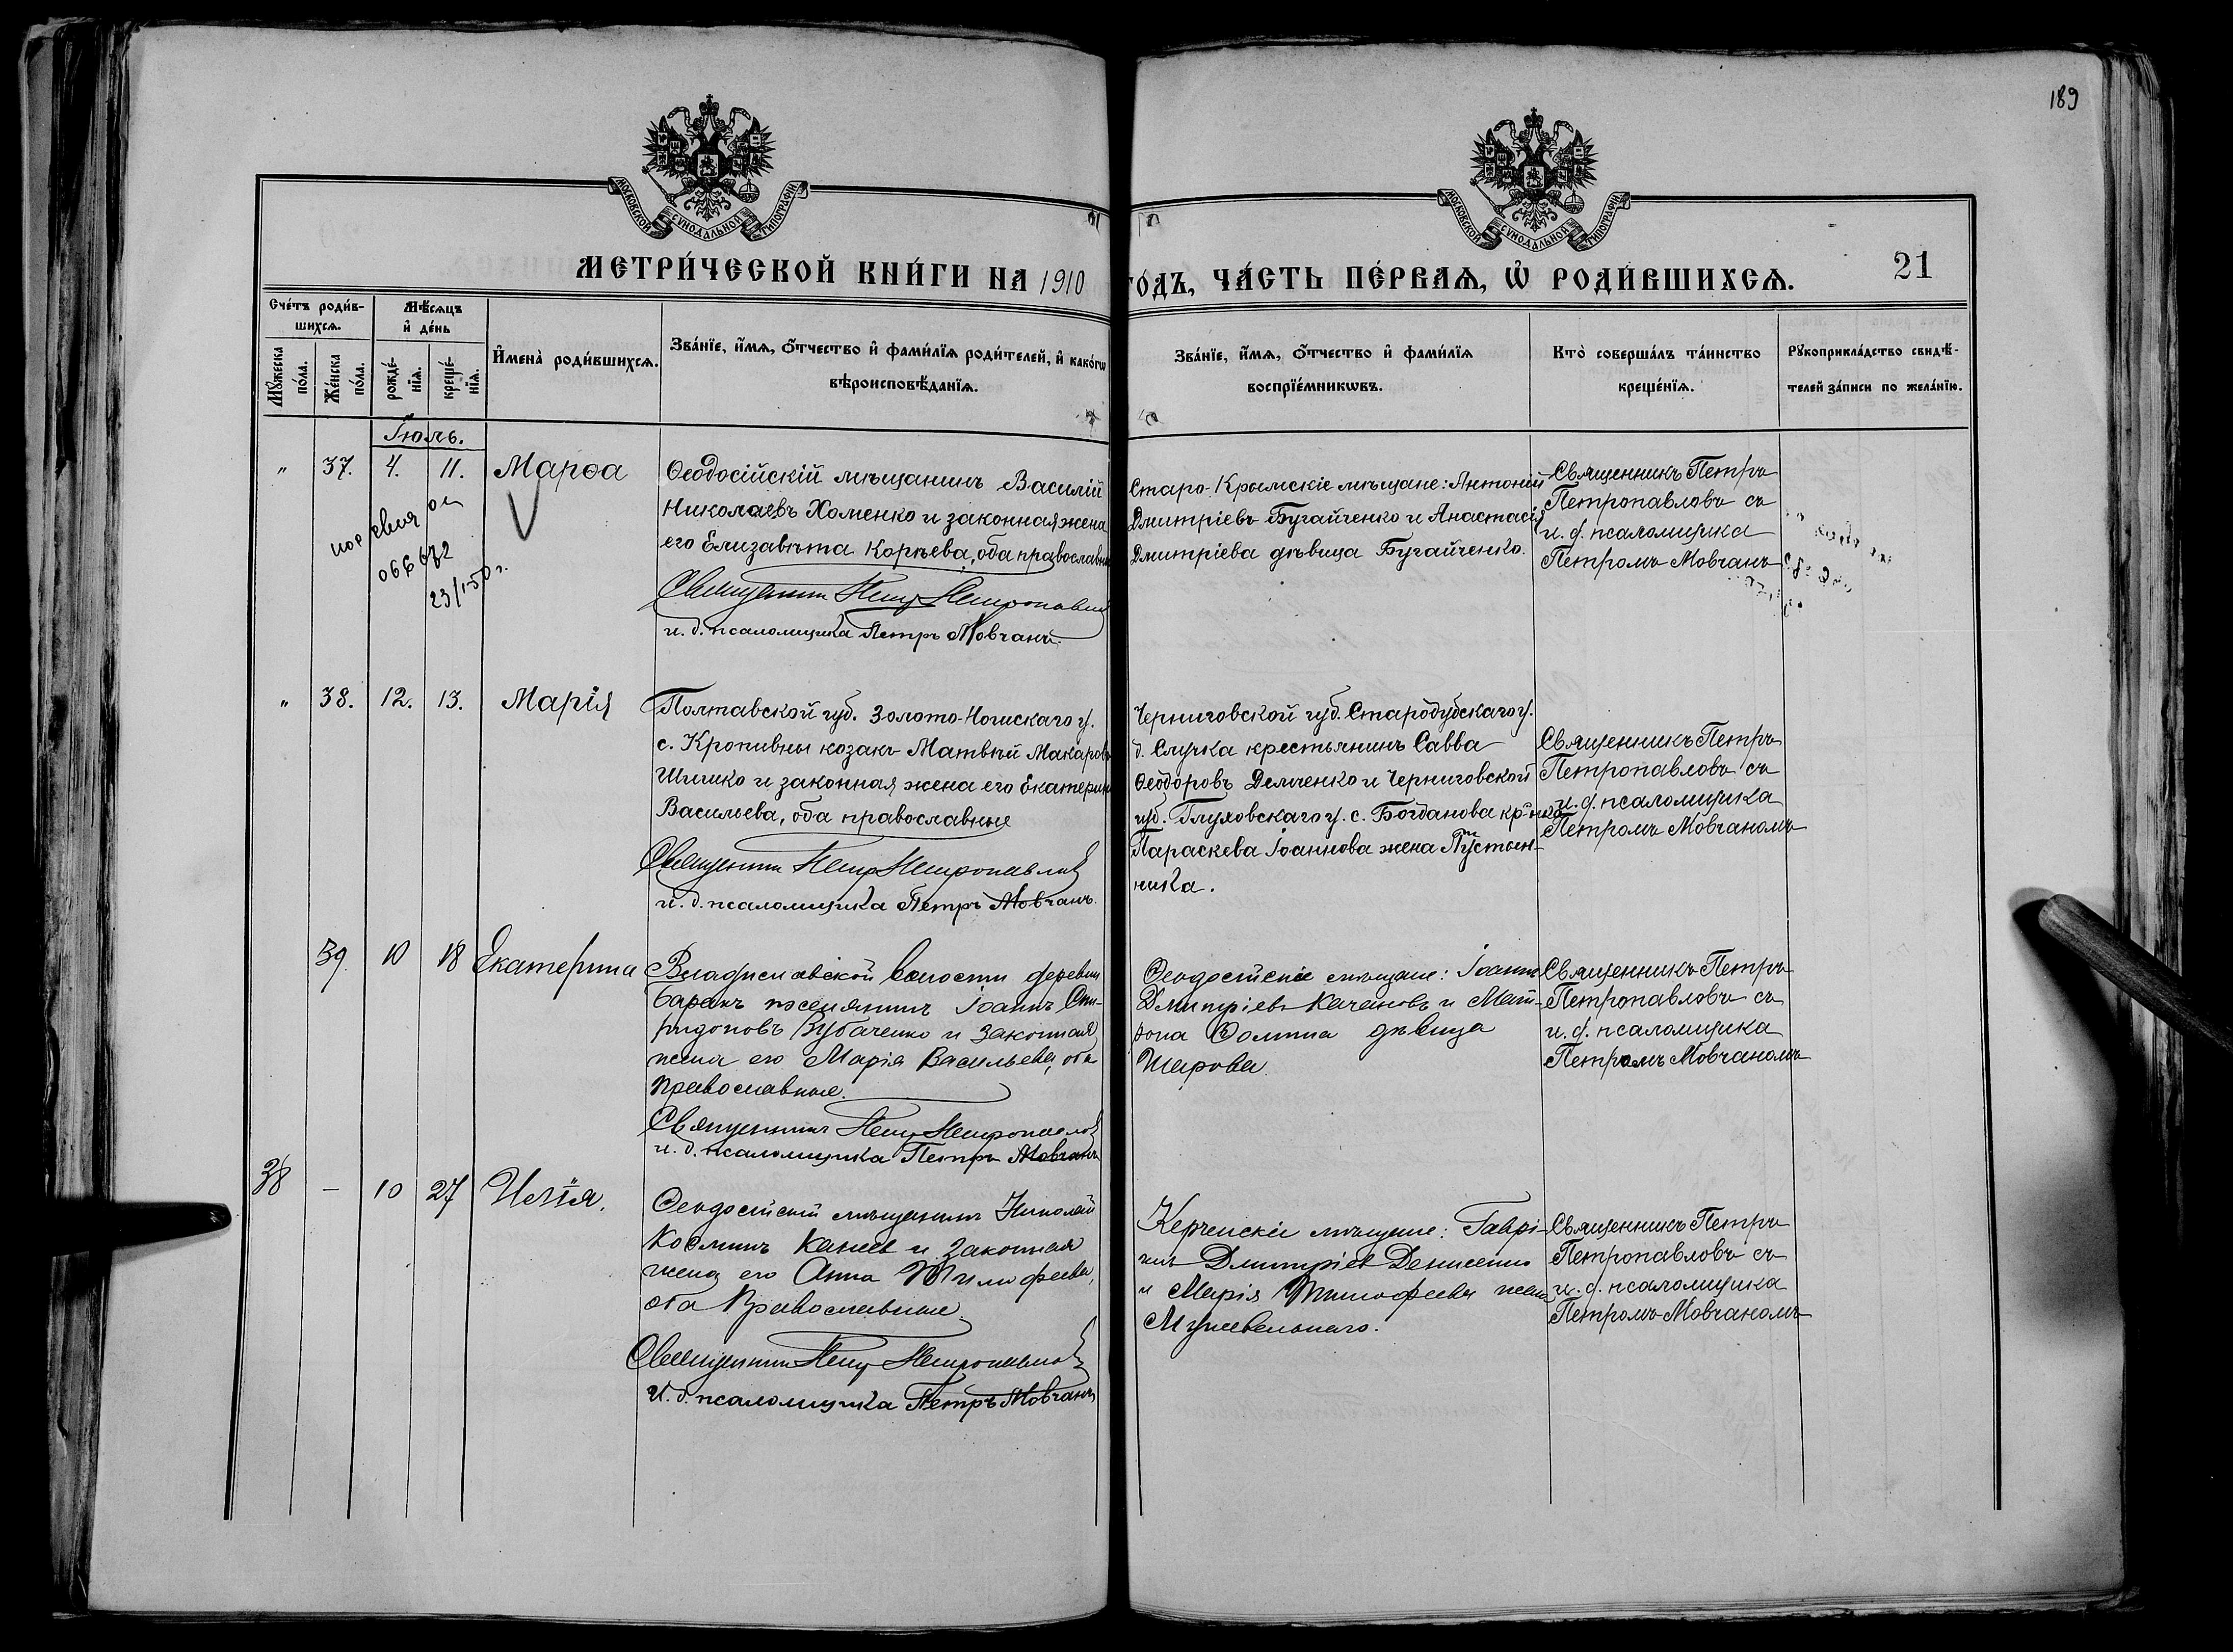 189
МОСКОВСКОЙ СѴНОДАЛЬНОЙ ТИПОГРАФІИ
МОСКОВСКОЙ СѴНОДАЛЬНОЙ ТИПОГРАФІИ
МЕТРИ́ЧЕСКОЙ КНИ́ГИ НА 1910
ГО́ДЪ, ЧА́СТЬ ПЕ́РВАѦ, Ѽ РОДИ́ВШИХСѦ.
21
Сче́тъ роди́в-
шихсѧ.
Мꙋжеска по́ла.
Же́нска по́ла.
Мѣ́сѧцъ
и҆ де́нь
рожде́-
нїѧ.
креще́-
нїѧ.
И҆мена̀ роди́вшихсѧ.
Зва́нїе, и҆́мѧ, ѻ҆́тчество и҆ фами́лїѧ роди́телей, и҆ како́гѡ
вѣроисповѣ́данїѧ.
Зва́нїе, и҆́мѧ, ѻ҆́тчество и҆ фами́лїѧ
воспрїе́мникѡвъ.
Кто̀ соверша́лъ та́инство
креще́нїѧ.
Рꙋкоприкла́дство свидѣ́-
телей за́писи по жела́нїю.
Іюль.
" 37. 4. 11. Марѳа
066672
23/I-50 г.
Ѳеодосійскій мѣщанинъ Василій
Николаевъ Хоменко и законная жена
его Елизавѣта Корѣева, оба православн
Священникъ Петр Петропавлов
и. д. псаломщика Петръ Мовчанъ.
Старо-Крымскіе мѣщане: Антоній
Дмитріевъ Бугайченко и Анастасія
Дмитріева дѣвица Бугайченко.
Священникъ Петръ
Петропавловъ съ
и. д. псаломщика
Петромъ Мовчанъ
" 38. 12. 13. Марія
Полтавской губ. Золото-Ношскаго у.
с. Кропивны козакъ Матвѣй Макаровъ
Шишко и законная жена его Екатерин
Васильева, оба православные
Священникъ Петр Петропавлов
и. д. псаломщика Петръ Мовчанъ.
Черниговской губ. Стародубскаго у.
д. Случка крестьянинъ Савва
Ѳеодоровъ Демченко и Черниговской
губ. Глуховскаго у. с. Богданова кр-нка
Параскева Іоаннова жена Пустын-
ника.
Священникъ Петръ
Петропавловъ съ
и. д. псаломщика
Петромъ Мовчаномъ
39 10 18 Екатерина
Владиславской волости деревни
Баракъ поселянинъ Іоаннъ Спи-
ридоновъ и законная
жена его Марія Васильева, оба
православные.
Священникъ Петр Петропавлов
и. д. псаломщика Петръ Мовчанъ
Ѳеодосійскіе мѣщане: Іоаннъ
Дмитріевъ Качановъ и Мат-
рона Ѳомина дѣвица
Шарова.
Священникъ Петръ
Петропавловъ съ
и. д. псаломщика
Петромъ Мовчаномъ
38 — 10 27 Илія.
Ѳеодосійскій мѣщанинъ Николай
Косминъ Канѣев и законная
жена его Анна Тимофеева,
оба Православные.
Священникъ Петр Петропавлов
И. д. псаломщика Петръ Мовчанъ
Керченскіе мѣщане: Гаврі-
илъ Дмитріев Денисенко
и Марія Тимофеева жена
Священникъ Петръ
Петропавловъ съ
и. д. псаломщика
Петромъ Мовчаномъ